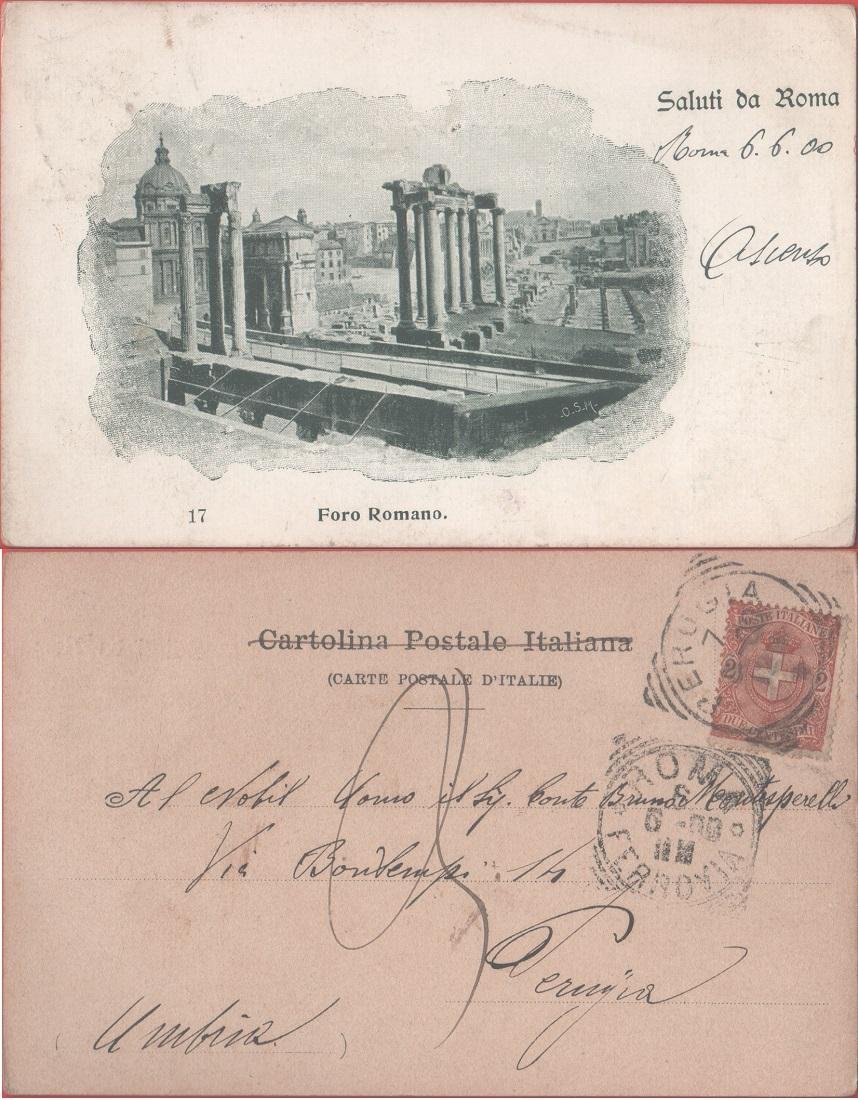 Saluti da Roma
Roma 6.6.00
-C.S.M-
17 Foro Romano.
Cartolina Postale Italiana
(CARTE POSTALE D'ITALIE)
PERUGIA
7
POSTE ITALIANE
2 2
DUE CENTESIMI
ROMA
6
FERROVIA
Al Nobil Uomo il Sig. Conte Bruno Montesperelli
Via Bontempi 14
Perugia
(Umbria)